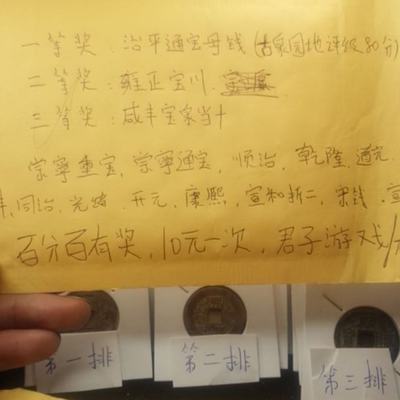 一等奖：治平通宝母钱(古泉园地评级80分)
二等奖：雍正宝川
三等奖：咸丰宝泉当十
崇宁重宝，崇宁通宝，顺治，乾隆，道光
同治，光绪，开元，康熙，宣和折二，宋钱，宣
百分百有奖，10元一次，君子游戏
第一排
第二排
第三排